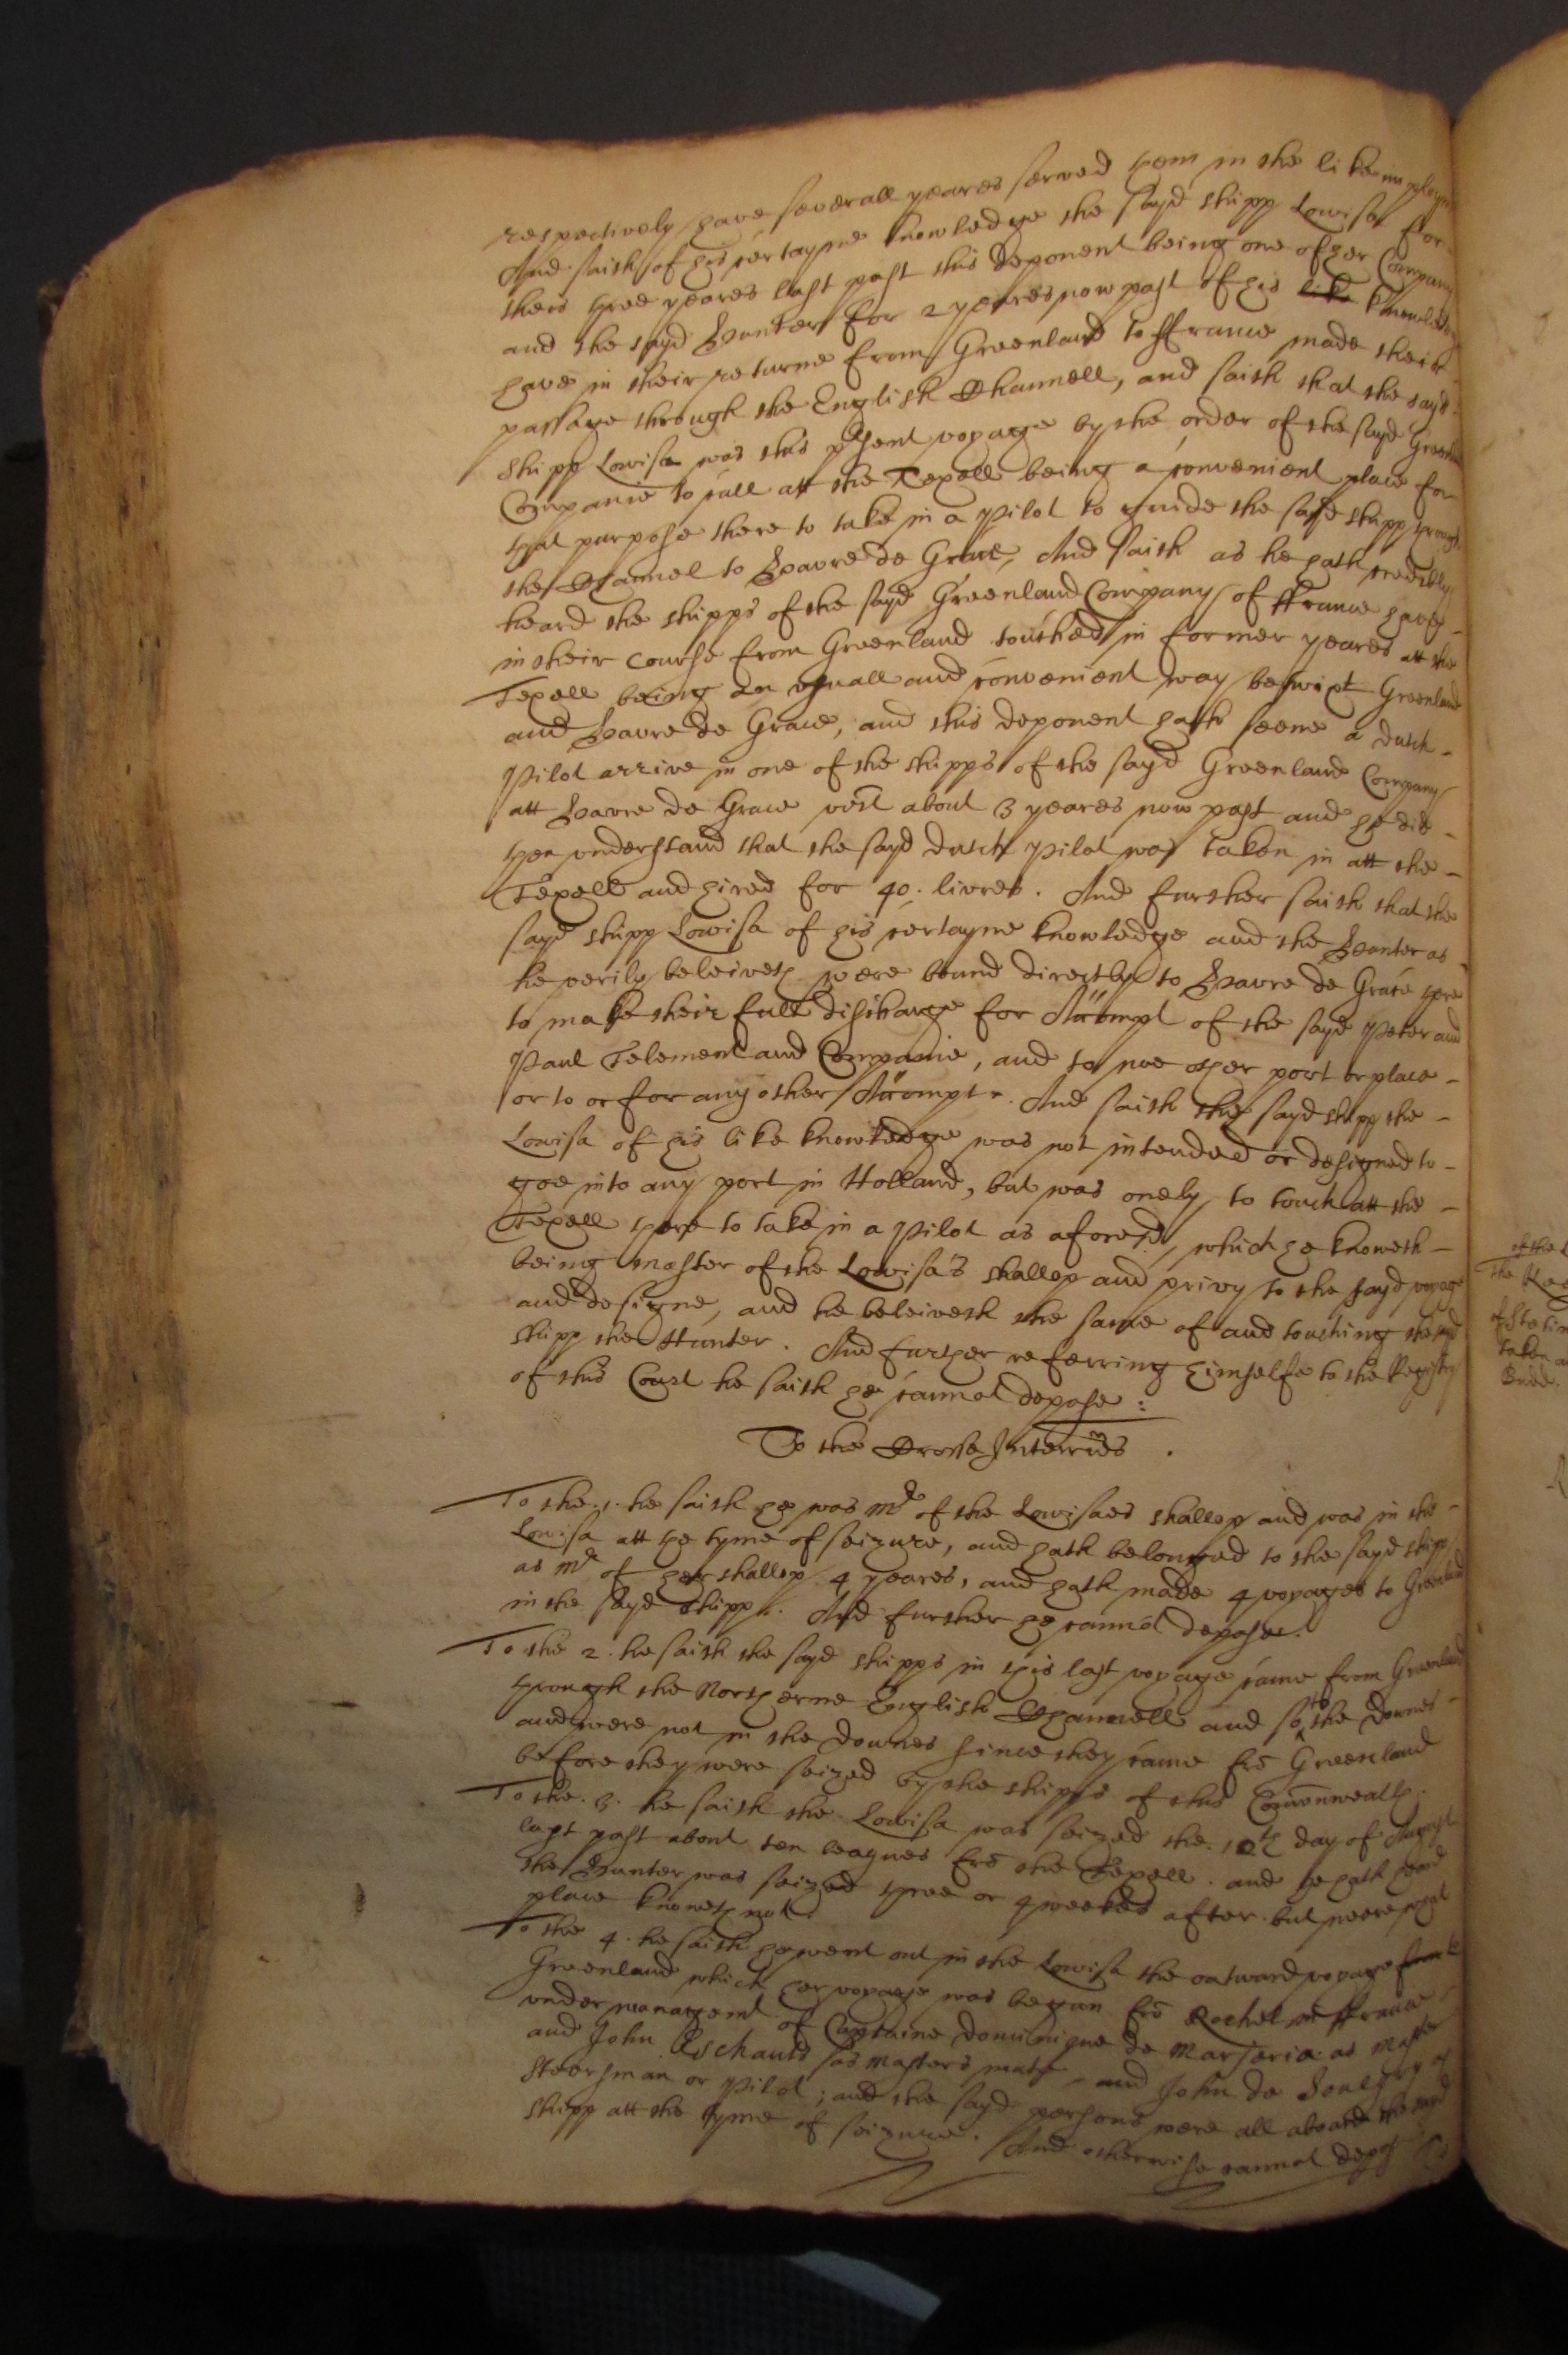 respectively have severall yeares served them in the like imploym
And saith of his certayne knowledge the sayd shipp Lowisa for
theis three yeares last past this deponent being one of her Company
and the sayd Hunter for 2 yeares now past of his like knowledge
have in their returne from Greenland to ffrance made their
passage through the English Channell, and saith that the sayd
Shipp Lowisa was this present voyage by the order of the sayd Greenland
Companie to call att the Texell being a convenient place for
that purpose there to take in a Pilot to guide the sayd shipp through
the Channel to Havre de Grace, And saith as he hath credibly
heard the shipps of the sayd Greenland Company of ffrance have
in their course from Greenland touched in former yeares att the
Texell being an usuall and convenient way betwixt Greenland
and Havre de Grace, and this deponent hath seene a dutch
Pilot arrive in one of the shipps of the sayd Greenland Company
att Havre de Grace vizt about 3 yeares now past and he did
then understand that the sayd dutch Pilot was taken in att the
Texell and hired for 40. livres. And further saith that the
sayd shipp Lowisa of his certayne knowledge and the Hunter as
he verily beleiveth were bound directly to Havre de Grace there
to make their full discharge for Accompt of the sayd Peter and
Paul Telement and Companie, and to noe other port or place
or to or for any other Accompt. And saith the sayd shipp the
Lowisa of his like knowledge was not intended or designed to
goe into any port in Holland, but was onely to touch att the
Texell there to take in a Pilot as aforesd, which he knoweth
being master of the Lowisa's shallop and privy to the sayd voyage
and designe, and he beleiveth the same of and touching the sayd
shipp the Hunter. And further referring himselfe to the Registry
of this Court he saith he cannot depose:
To the Crosse Interries.
To the .1. he saith he was Mr of the Lowisaes shallop and was in the
Lowisa att the tyme of seizure, and hath belonged to the sayd shipp
as Mr of her shallop 4 yeares, and hath made 4 voyages to Greenland
in the sayd shipp. And further he cannot depose.
To the 2. he saith the sayd shipps in this last voyage came from Greenland
through the Northerne English Channell and so to the Downes
and were not in the Downes since they came frō Greenland
before they were seized by the shipps of this Com̄onwealth.
To the .3. he saith the Lowisa was seized the 10th day of August
last past about ten leagues frō the Texell. and he hath heard
the Hunter was seized three or 4 weekes after but neere what
place knoweth not.
To the 4. he saith he went out in the Lowisa the outward voyage
Greenland which her voyage was begun frō Rochel in ffrance
under managemt of Captaine Dominique de Marseria as Master
and John Eschauts as masters mate and John de
Steersman or Pilot; and the sayd persons were all aboard the sayd
shipp att the tyme of seizure. And otherwise cannot depose
of the
the
taken